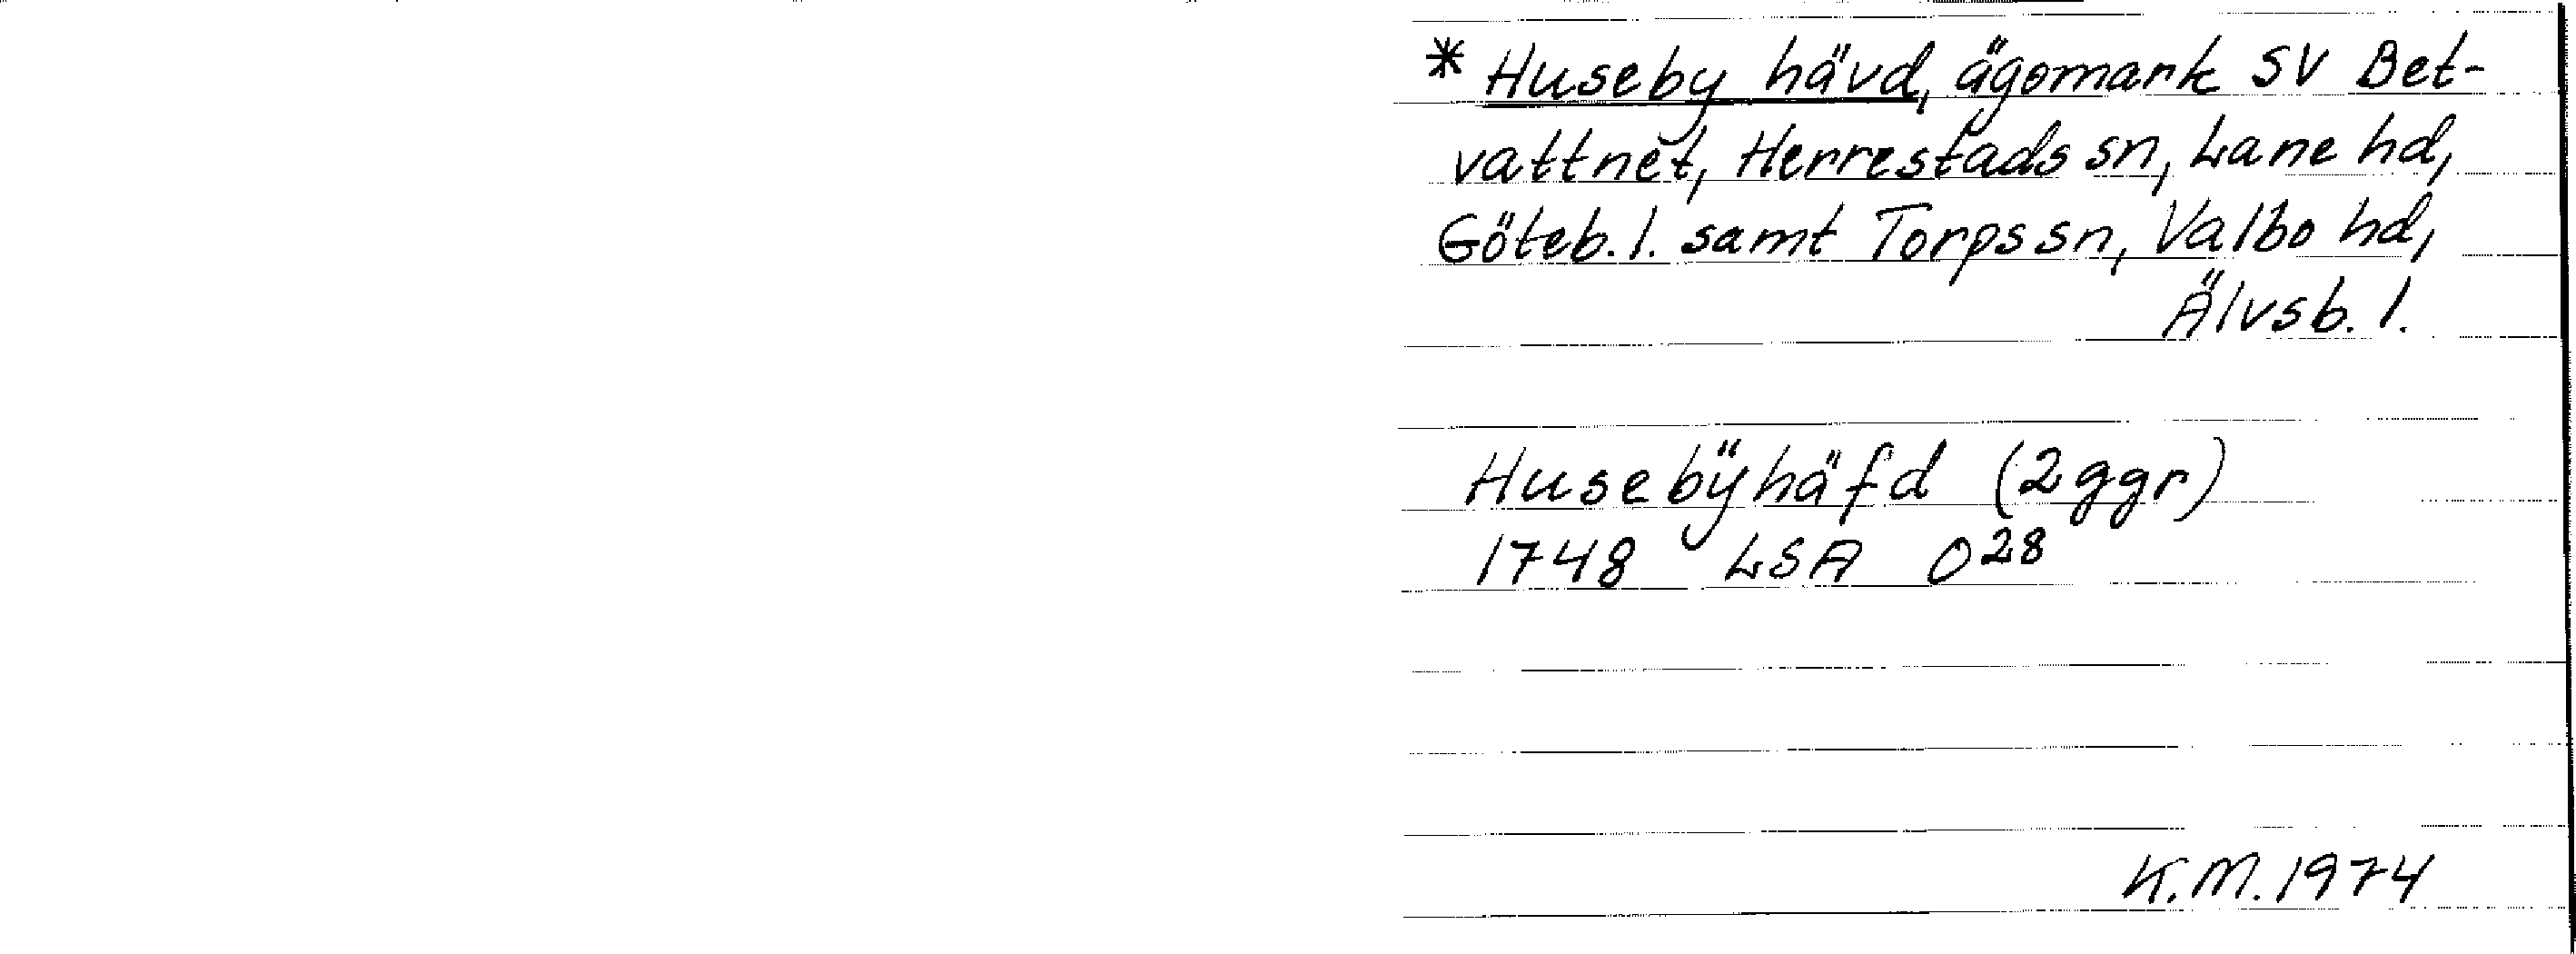 * Huseby hävd, ägomark SV Bet-
vattnet, Herrestads sn, Lane hd,
Göteb. l. samt Torps sn, Valbo hd,
Älvsb. l.
Husebÿhäfd (2 ggr)
1748 LSA O²⁸
K.M. 1974